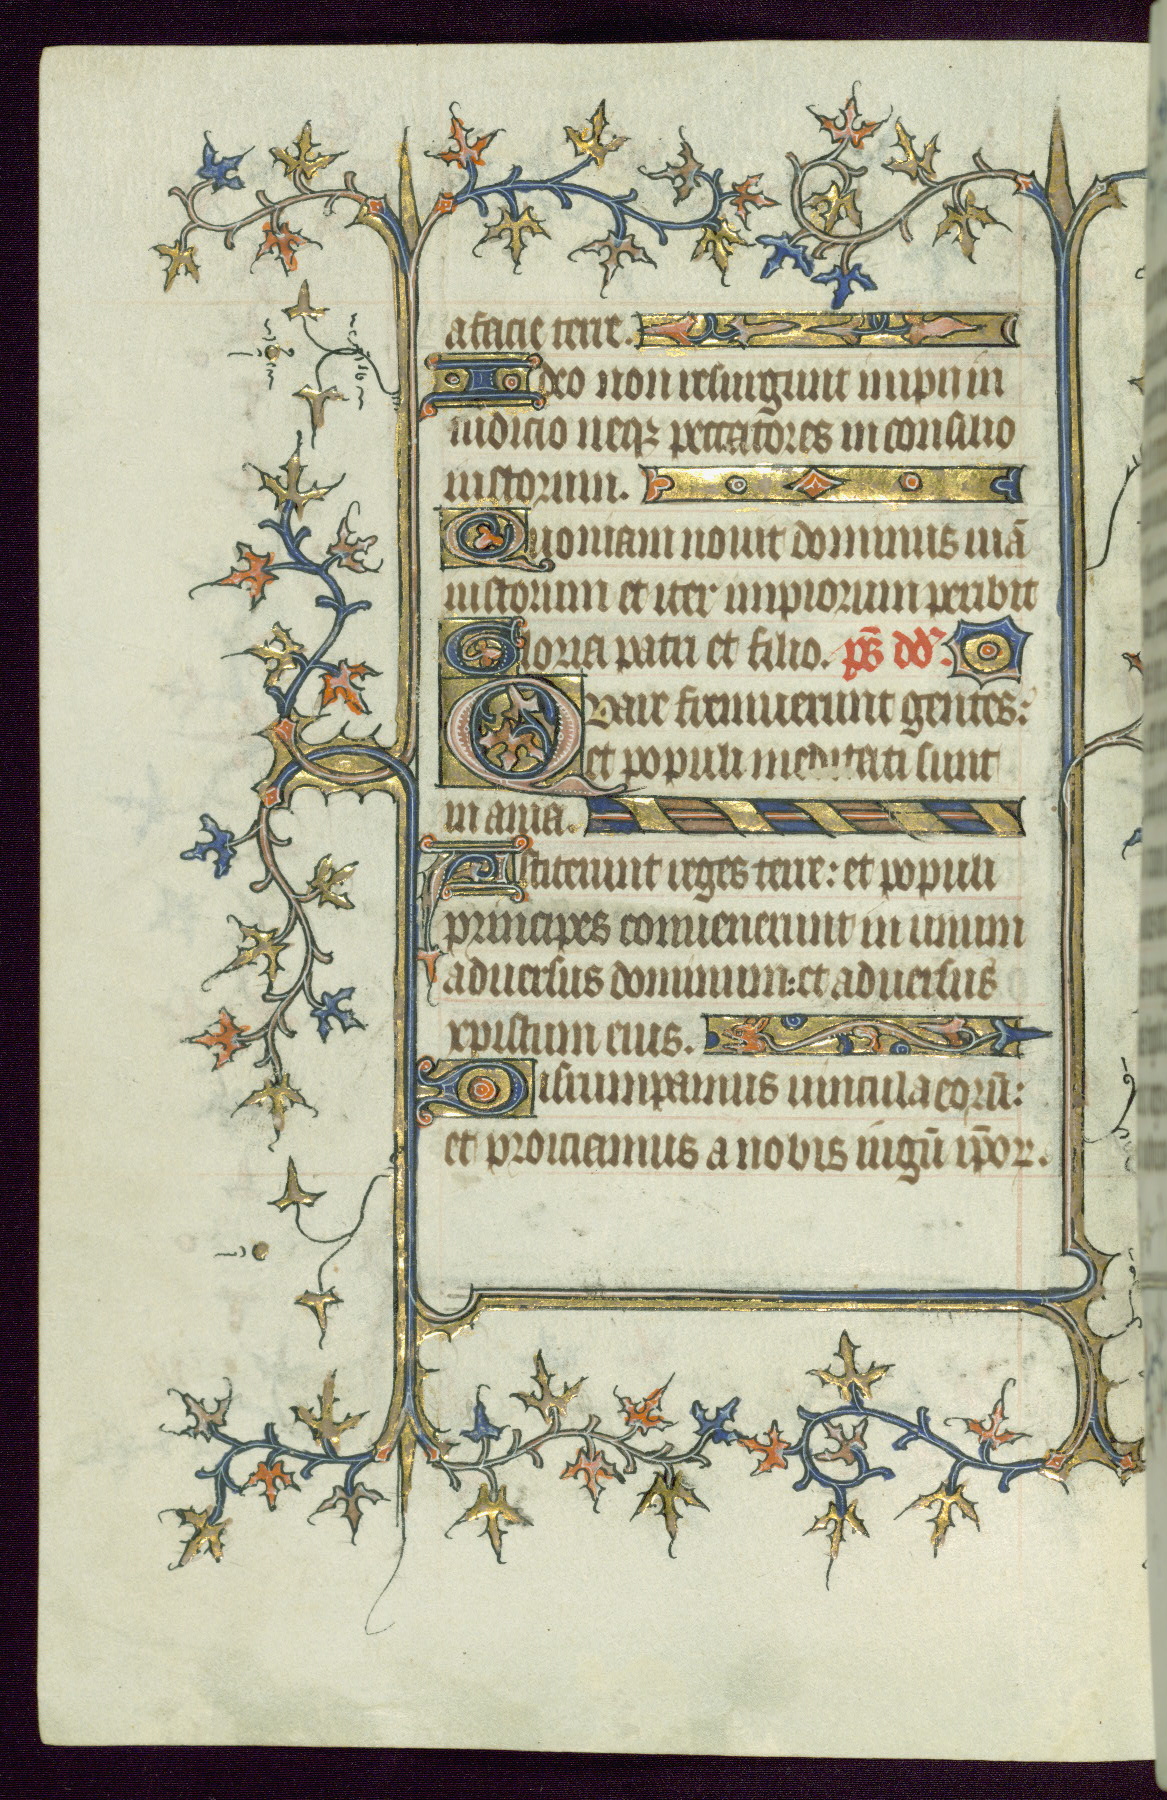 a facie terre.
Ideo non resurgunt impii in
iudicio neqꝫ peccatores in consilio
iustorum.
Quoniam nouit dominus uiā
iustorum et iter impiorum peribit
Gloria patri et filio. p̄s dd̄.
Quare fremuerunt gentes:
et populi meditati sunt
inania.
Astiterunt reges terre: et populi
principes conuenerunt in unum
aduersus dominum: et aduersus
xpistum eius.
Disrumpamus uincula eorū:
et proiciamus a nobis iugū ip̄oꝝ.